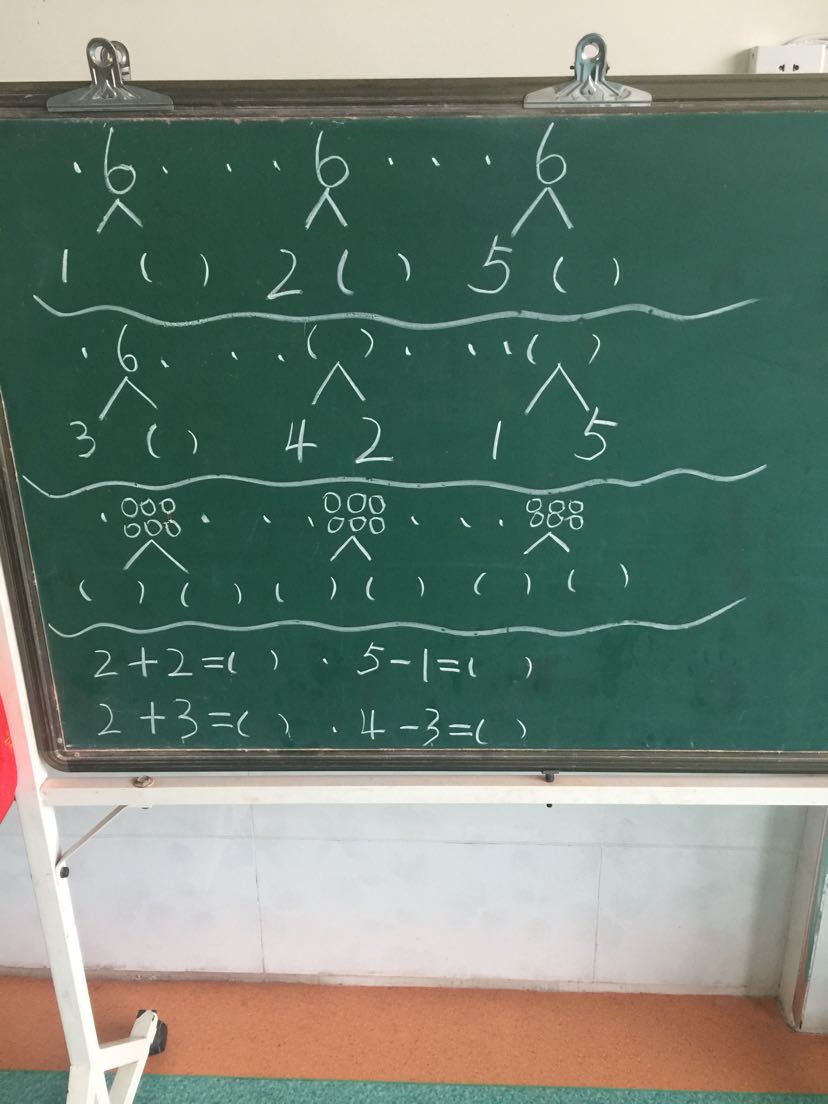 6 6 6
1 ( ) 2 ( ) 5 ( )
6 ( ) ( )
3 ( ) 4 2 1 5
( ) ( ) ( ) ( ) ( ) ( )
2+2=( ) · 5-1=( )
2+3=( ) · 4-3=( )